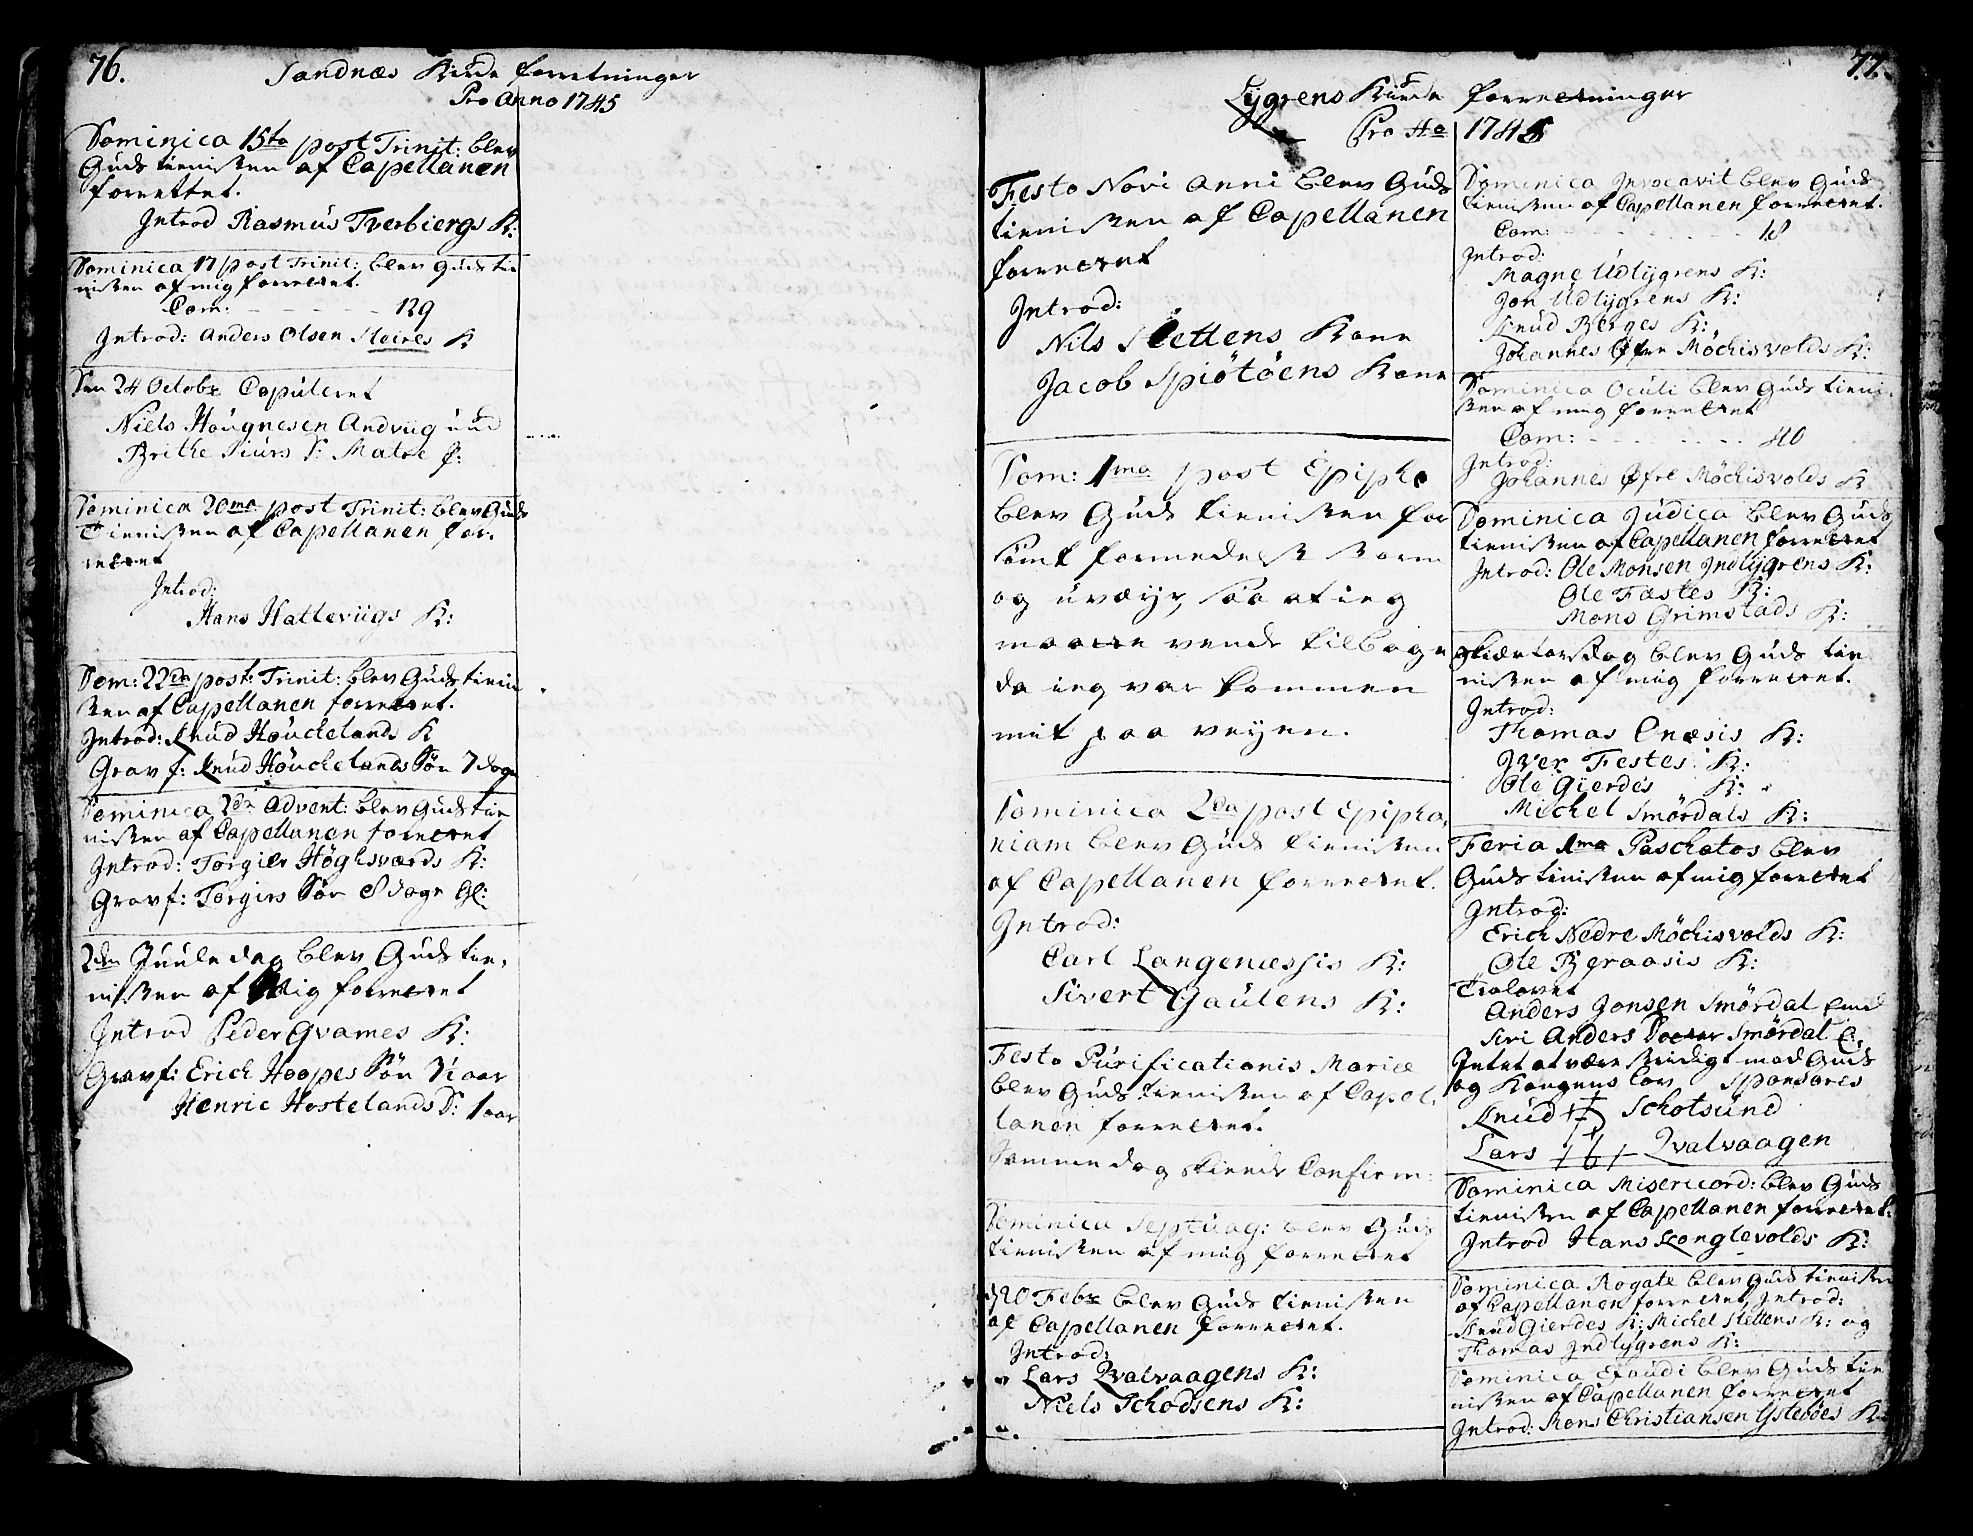 76.
Sandnæs Kirke forretninger
Pro Anno 1745
Dominica 15to post Trinit: blev
Guds tienisten af Capellanen
forrettet.
Introd Rasmus Tverbiergs K:
Dominica 17 post Trinit: blev Guds tie
nisten af mig forrettet.
Com: - - - - - - 129
Introd: Anders Olsen Steires K
Den 24 Octobr Copuleret
Niels Haugnesen Andviig und
Brithe Siurs D: Matre f:
Dominica 20ma post Trinit: blev Guds
Tienisten af Capellanen for.
rettet
Introd:
Hans Hatleviigs K:
Dom: 22da post: Trinit: blev Guds tieni
sten af Capellanen forrettet.
Introd: Knud Houchelands K
Gravf: Knud Houchelands Søn 7 dage
Dominica 2da Advent: blev Guds tie
nisten af Capellanen forrettet
Introd: Torgier Høghsværds K:
Gravf: Torgiers Søn 8 dage Gl:
2den Juule dag blev Guds tie,
nisten af Mig forrettet
Introd Peder Qvames K:
Gravf: Erich Hoopes Søn 3½ aar
Henric Hostelands D: 1 aar
77.
Lygrens Kirke forretninger
Pro Ao 1745
Festo Novi Anni blev Guds
tienisten af Capellanen
forrettet
Introd:
Nils Slettens Kone
Jacob Spiötöens Kone
Dom: 1ma post Epiph:
blev Guds tienisten for
sömt formedelst storm
og uveyr, saa at ieg
maatte vende tilbage
da ieg var kommen
mit paa veyen.
Dominica 2da post Epipha,
niam blev Guds tienisten
af Capellanen forrettet.
Introd:
Carl Langenæssis K:
Sivert Gaulens K:
Festo Purificationis Mariæ
blev Guds tienisten af Capel,
lanen forrettet.
Samme dag skeede Confirm:
Dominica Septuag: blev Guds
tienisten af mig forrettet
d 20 Febr blev Guds tienisten
af Capellanen forrettet.
Introd:
Lars Qvalvaagens K:
Niels Schodsens K:
Dominica Invocavit blev Guds
tienisten af Capellanen forrettet.
Com: - - - - - - 18
Introd:
Magne Udlygrens K:
Jon Udlygrens K:
Knud Berges K:
Johannes Øfre Møchisvolds K:
Dominica Oculi blev Guds tieni
sten af mig forrettet
Com: - - - - - - 40
Introd:
Johannes Øfre Möchisvolds K
Dominica Judica blev Guds
tienisten af Capellanen forrettet
Introd: Ole Monsen Indlygrens K:
Ole Fastes K:
Mons Grimstads K:
Skiertorsdag blev Guds tie
nisten af mig forrettet.
Introd:
Thomas Enæsis K:
Iver Festes K:
Ole Gierdes K:
Michel Smördals K:
Feria 1ma Paschatos blev
Guds tienisten af mig forrettet
Introd:
Erich Nedre Möchisvolds K:
Ole Bgraasis K:
Trolovet
Anders Jonsen Smördal und
Siri Anders Dotter Smördal
Intet at være stridigt mod Guds
og Kongens lov Sponsores
Knud Schotsund
Lars Qvalvaagen
Dominica Misericord: blev Guds
tienisten af Capellanen forrettet.
Introd Hans Konglevolds K:
Dominica Rogate blev Guds tienisten
af Capellanen forrettet, Introd:
Knud Gierdes K: Michel Slettens K: og
Thomas Indlygrens K:
Dominica Exaudi blev Guds tie
nisten af Capellanen forrettet
Introd: Mons Christiansen Ystebøes K: